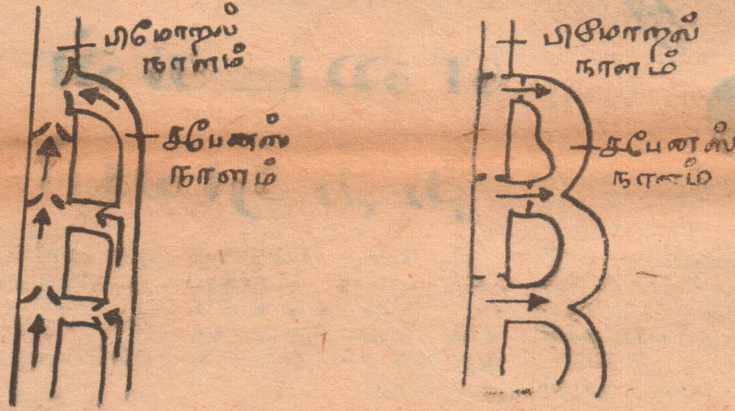 பிமோறல்
நாளம்
சபேனஸ்
நாளம்
பிமோறல்
நாளம்
சபேனஸ்
நாளம்